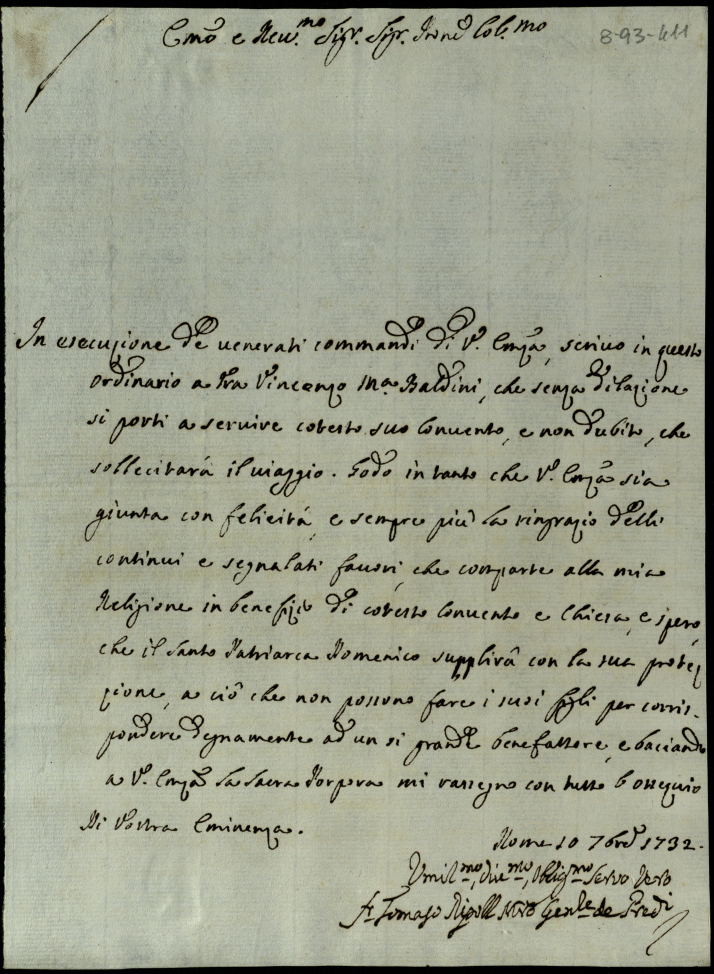 Emo e Rev.mo Sigr. Sigr. Prone Col.mo
8-93-411
In esecuzione de venerati commandi di V. Emza, scrivo in questo
ordinario a Fra Vincenzo Ma Baldini, che senza dilazione
si porti a servire cotesto suo Convento, e non dubito, che
sollecitarà il viaggio. Godo in tanto che V. Emza sia
giunta con felicità, e sempre più la ringrazio delli
continui e segnalati favori, che comparte alla mia
Religione in benefizio di cotesto Convento e Chiesa, e spero,
che il Santo Patriarca Domenico supplirà con la sua protez
zione, a ciò che non possono fare i suoi figli per corris-
pondere degnamente ad un si grande benefattore, e baciando
a V. Emza la Sacra Porpora mi rassegno con tutto l'ossequio
Di Vostra Eminenza.
Roma 10 7bre 1732.
Umil.mo, Div.mo, Oblig.mo Servo Vero
Fr Tomaso Ripoll Mro Genle de Predi